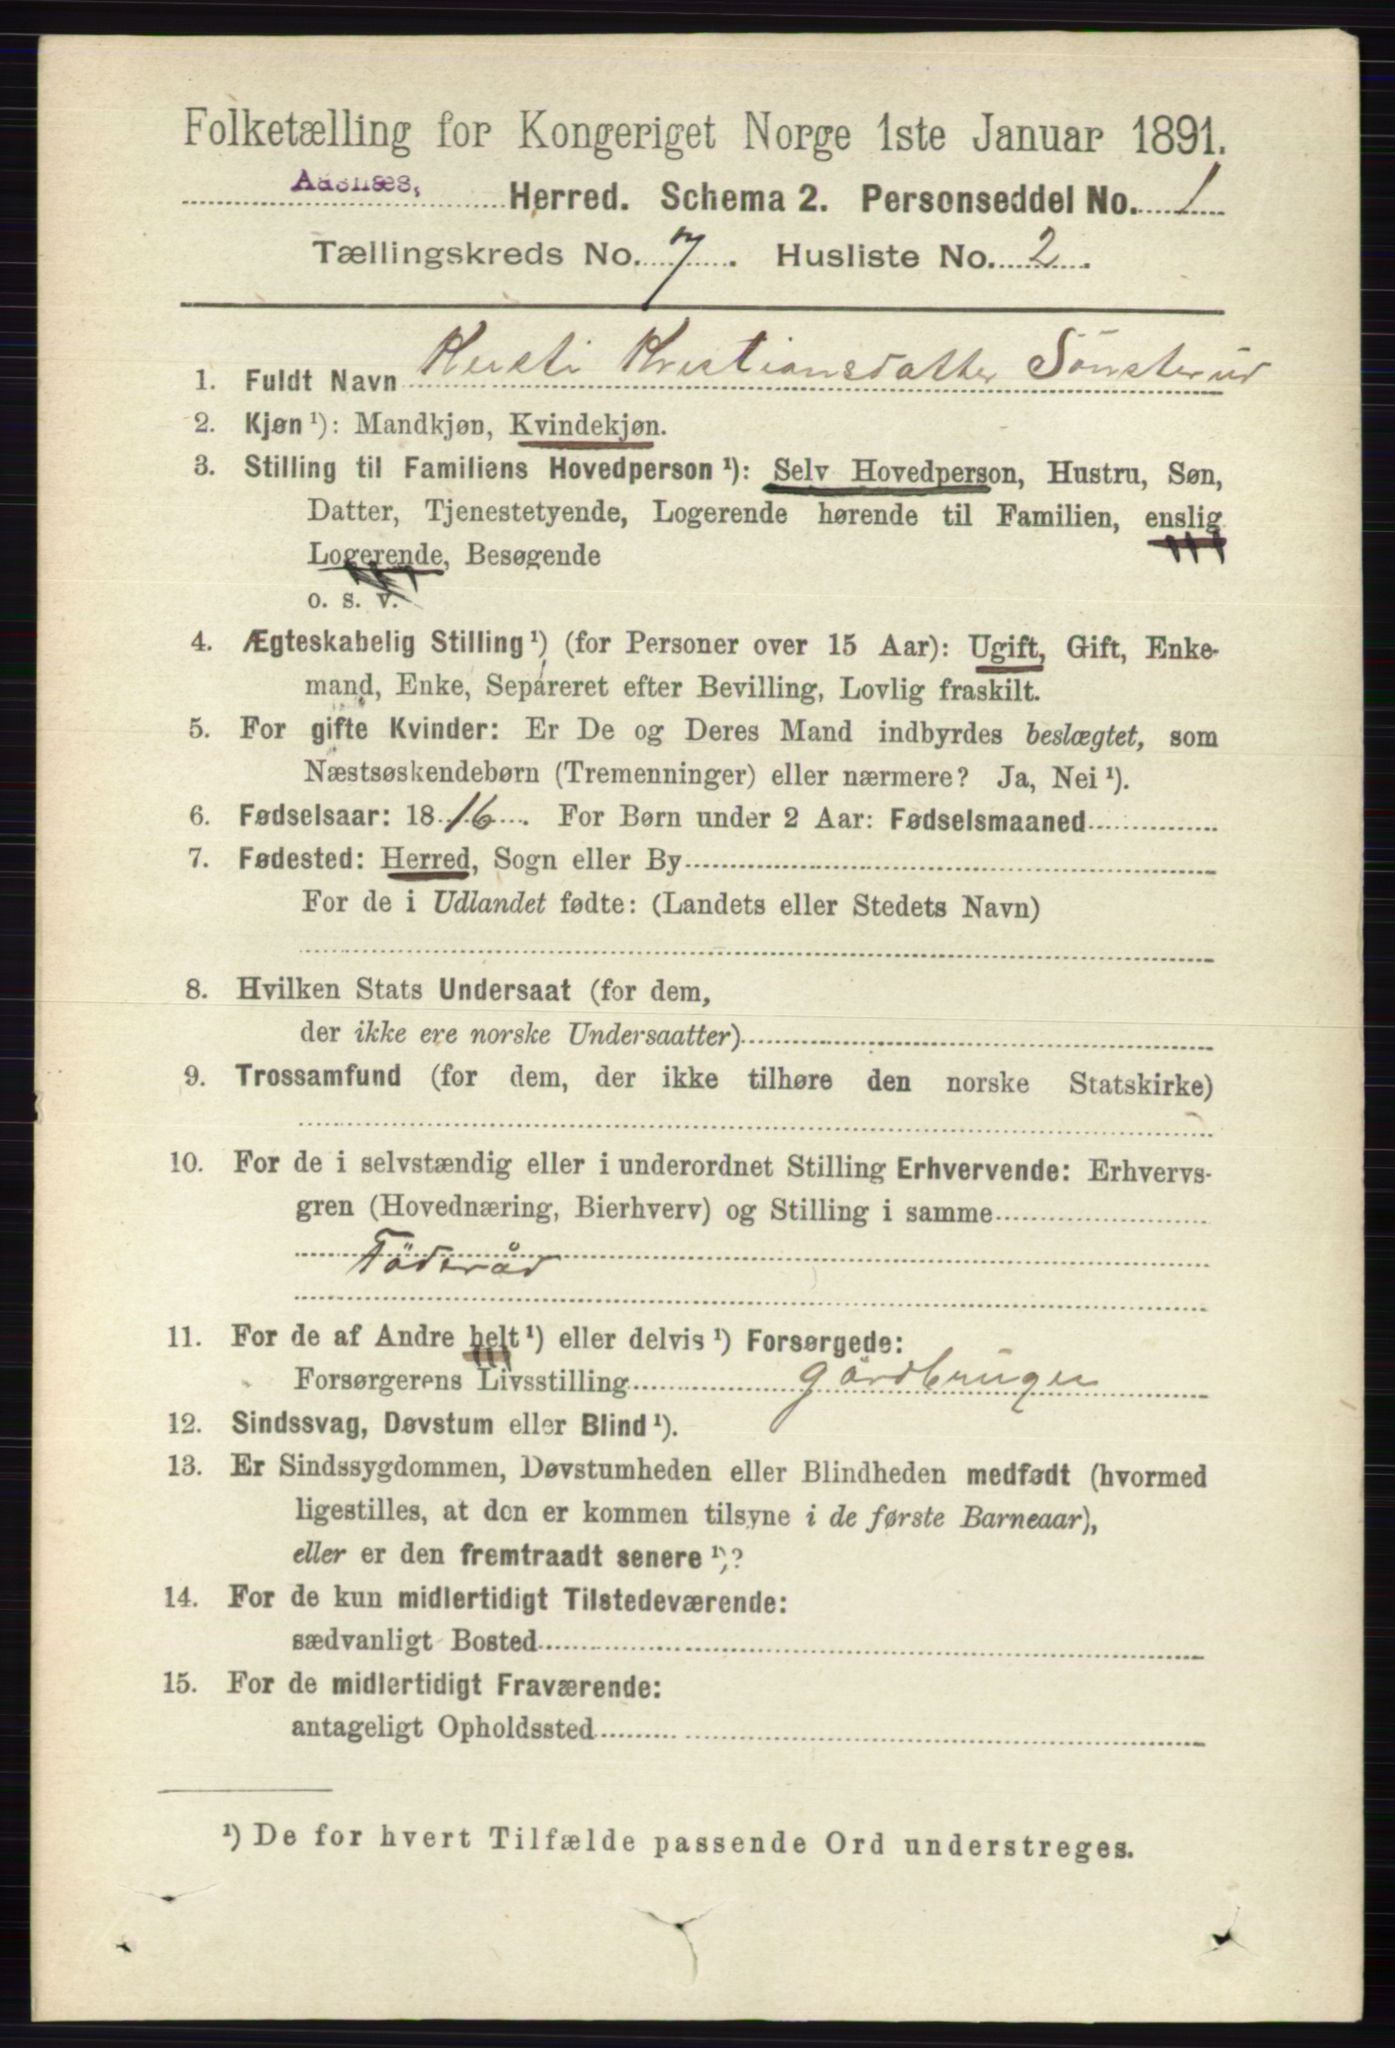 Folketælling for Kongeriget Norge 1ste Januar 1891.
Aasnæs, Herred. Schema 2. Personseddel No. 1
Tællingskreds No. 7. Husliste No. 2.
1. Fuldt Navn Kersti Kristiansdatter Sönsterud
2. Kjøn ¹): Mandkjøn, Kvindekjøn.
3. Stilling til Familiens Hovedperson ¹): Selv Hovedperson, Hustru, Søn,
Datter, Tjenestetyende, Logerende hørende til Familien, enslig
Logerende, Besøgende
o. s. v.
4. Ægteskabelig Stilling ¹) (for Personer over 15 Aar): Ugift, Gift, Enke-
mand, Enke, Separeret efter Bevilling, Lovlig fraskilt.
5. For gifte Kvinder: Er De og Deres Mand indbyrdes beslægtet, som
Næstsøskendebørn (Tremenninger) eller nærmere? Ja, Nei ¹).
6. Fødselsaar: 1816. For Børn under 2 Aar: Fødselsmaaned
7. Fødested: Herred, Sogn eller By
For de i Udlandet fødte: (Landets eller Stedets Navn)
8. Hvilken Stats Undersaat (for dem,
der ikke ere norske Undersaatter)
9. Trossamfund (for dem, der ikke tilhøre den norske Statskirke)
10. For de i selvstændig eller i underordnet Stilling Erhvervende: Erhvervs-
gren (Hovednæring, Bierhverv) og Stilling i samme
Föderåd
11. For de af Andre helt ¹) eller delvis ¹) Forsørgede:
Forsørgerens Livsstilling gårdbruger
12. Sindssvag, Døvstum eller Blind ¹).
13. Er Sindssygdommen, Døvstumheden eller Blindheden medfødt (hvormed
ligestilles, at den er kommen tilsyne i de første Barneaar),
eller er den fremtraadt senere ¹)?
14. For de kun midlertidigt Tilstedeværende:
sædvanligt Bosted
15. For de midlertidigt Fraværende:
antageligt Opholdssted
¹) De for hvert Tilfælde passende Ord understreges.